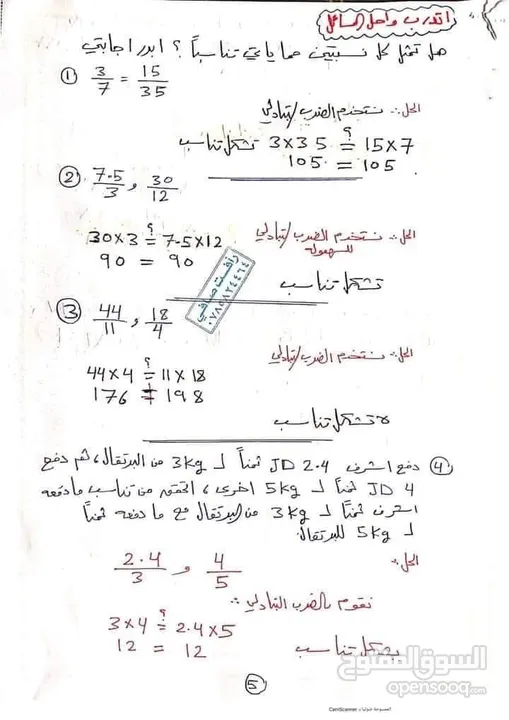 اتدرب واحل المسائل
هل تمثل كل نسبتين مما يأتي تناسباً؟ ابرر اجابتي
① 3/7 = 15/35
الحل: نستخدم الضرب التبادلي
3×35 ≟ 15×7 تشكل تناسب
105 = 105
② 7.5/3 , 30/12
الحل: نستخدم الضرب التبادلي
للسهولة
30×3 ≟ 7.5×12
90 = 90
تشكل تناسب
رأفت صافي
③ 44/11 , 18/4
الحل: نستخدم الضرب التبادلي
44×4 ≟ 11×18
176 ≠ 198
لا تشكل تناسب
④ دفع اشرف 2.4 JD ثمناً لـ 3kg من البرتقال، ثم دفع
4 JD ثمناً لـ 5kg اخرى، اتحقق من تناسب ما دفعه
اشرف ثمناً لـ 3kg من البرتقال مع ما دفعه ثمناً
لـ 5kg للبرتقال.
الحل:
2.4/3 و 4/5
نقوم بالضرب التبادلي:
3×4 ≟ 2.4×5
12 = 12
يشكل تناسب
⑤
السوق المفتوح
opensooq.com
الممسوحة ضوئيا بـ CamScanner